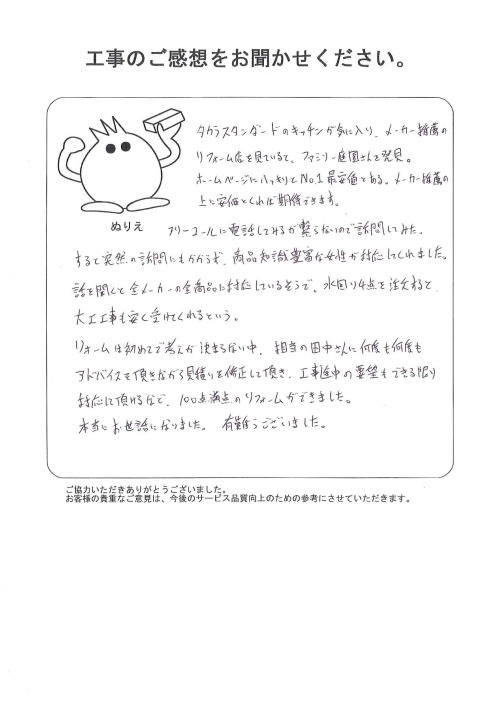 工事のご感想をお聞かせください。
タカラスタンダードのキッチンが気に入り、メーカー推薦の
リフォーム店を見ていると、ファミリー庭園さんを発見。
ホームページにハッキリとNo.1最安値とある。メーカー推薦の
上に安価とくれば期待できます。
ぬりえ
フリーコールに電話してみるが繋らないので訪問してみた。
すると突然の訪問にもかかわらず、商品知識豊富な女性が対応してくれました。
話を聞くと全メーカーの全商品に対応しているそうで、水回り4点を注文すると
大工工事も安く受けてくれるという。
リフォームは初めてで考えが決まらない中、担当の田中さんに何度も何度も
アドバイスを頂きながら見積りを修正して頂き、工事途中の要望もできる限り
対応して頂けるなど、100点満点のリフォームができました。
本当にお世話になりました。有難うございました。
ご協力いただきありがとうございました。
お客様の貴重なご意見は、今後のサービス品質向上のための参考にさせていただきます。